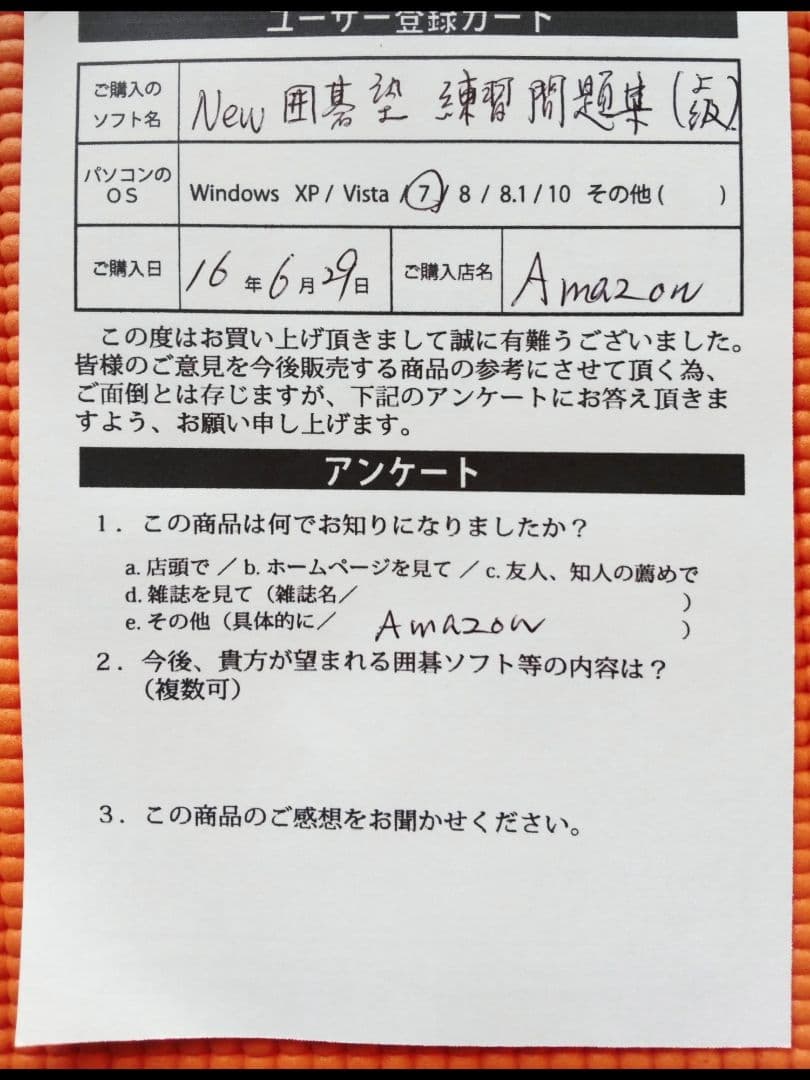 ユーザー登録カード
ご購入の
ソフト名
New 囲碁塾 練習問題集(上級)
パソコンの
OS
Windows XP / Vista / 7 / 8 / 8.1 / 10 その他 ( )
ご購入日
16年6月29日
ご購入店名
Amazon
この度はお買い上げ頂きまして誠に有難うございました。
皆様のご意見を今後販売する商品の参考にさせて頂く為、
ご面倒とは存じますが、下記のアンケートにお答え頂きま
すよう、お願い申し上げます。
アンケート
1．この商品は何でお知りになりましたか？
a. 店頭で ／ b. ホームページを見て ／ c. 友人、知人の薦めで
d. 雑誌を見て（雑誌名／ ）
e. その他（具体的に／ Amazon ）
2．今後、貴方が望まれる囲碁ソフト等の内容は？
（複数可）
3．この商品のご感想をお聞かせください。